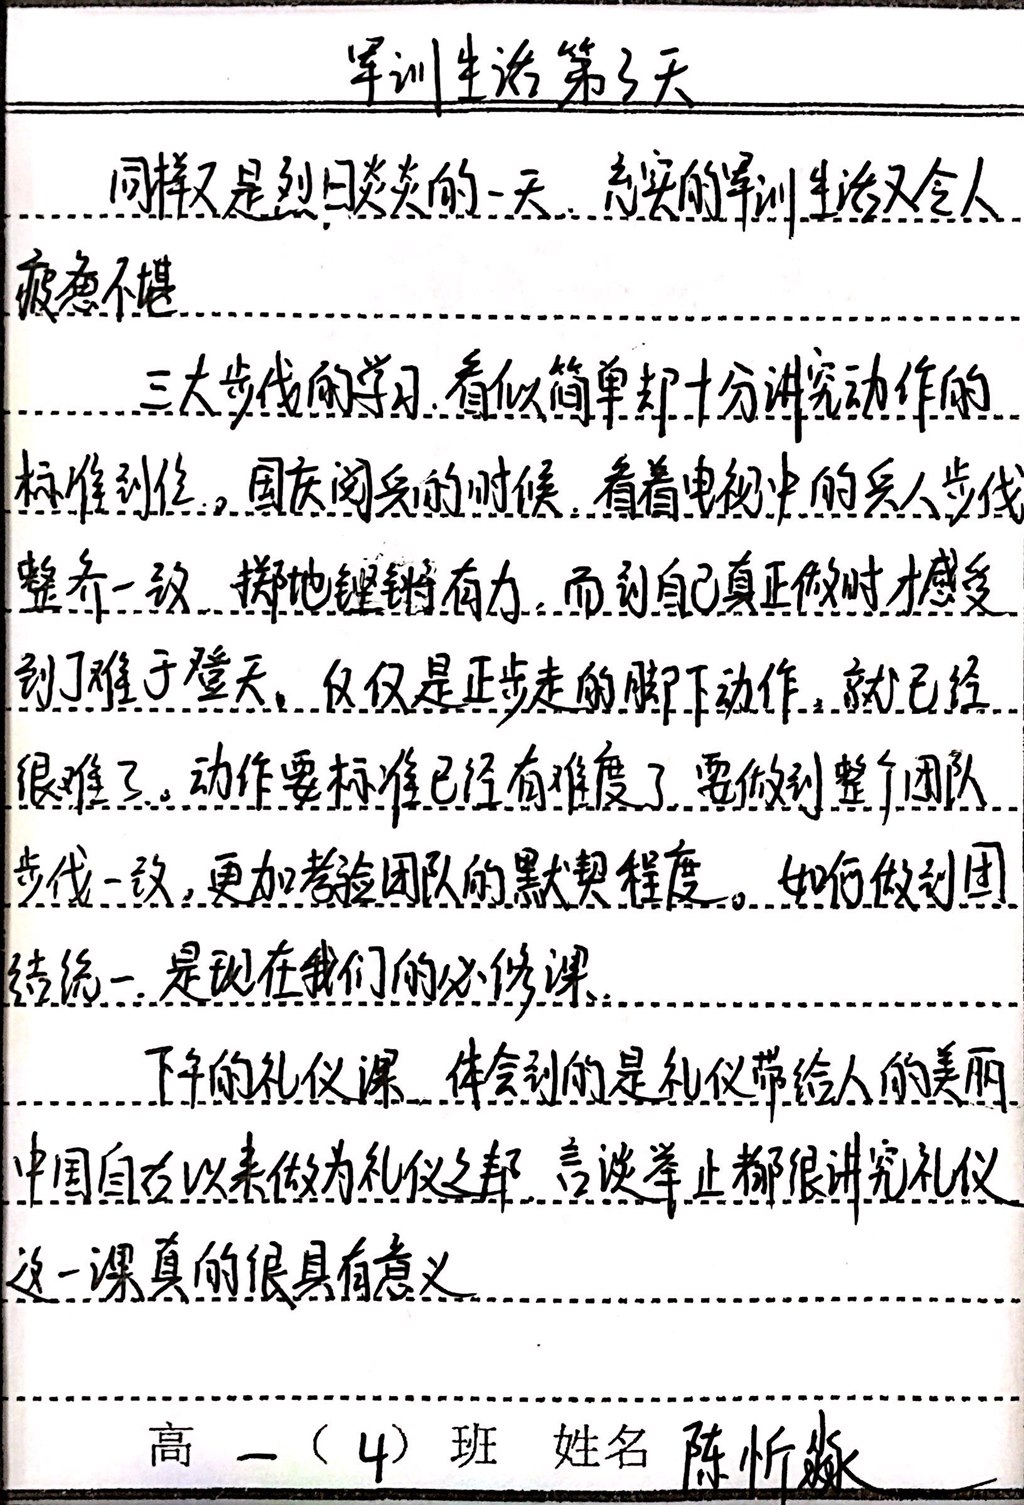 军训生活第3天
同样又是烈日炎炎的一天.充实的军训生活又令人
疲惫不堪
三大步伐的学习.看似简单却十分讲究动作的
标准到位。国庆阅兵的时候.看着电视中的兵人步伐
整齐一致 掷地铿锵有力.而到自己真正做时才感受
到了难于登天。仅仅是正步走的脚下动作.就已经
很难了。动作要标准已经有难度了.要做到整个团队
步伐一致,更加考验团队的默契程度。如何做到团
结统一.是现在我们的必修课.
下午的礼仪课 体会到的是礼仪带给人的美丽
中国自古以来做为礼仪之邦.言谈举止都很讲究礼仪
这一课真的很具有意义
高一(4)班 姓名 陈忻淼